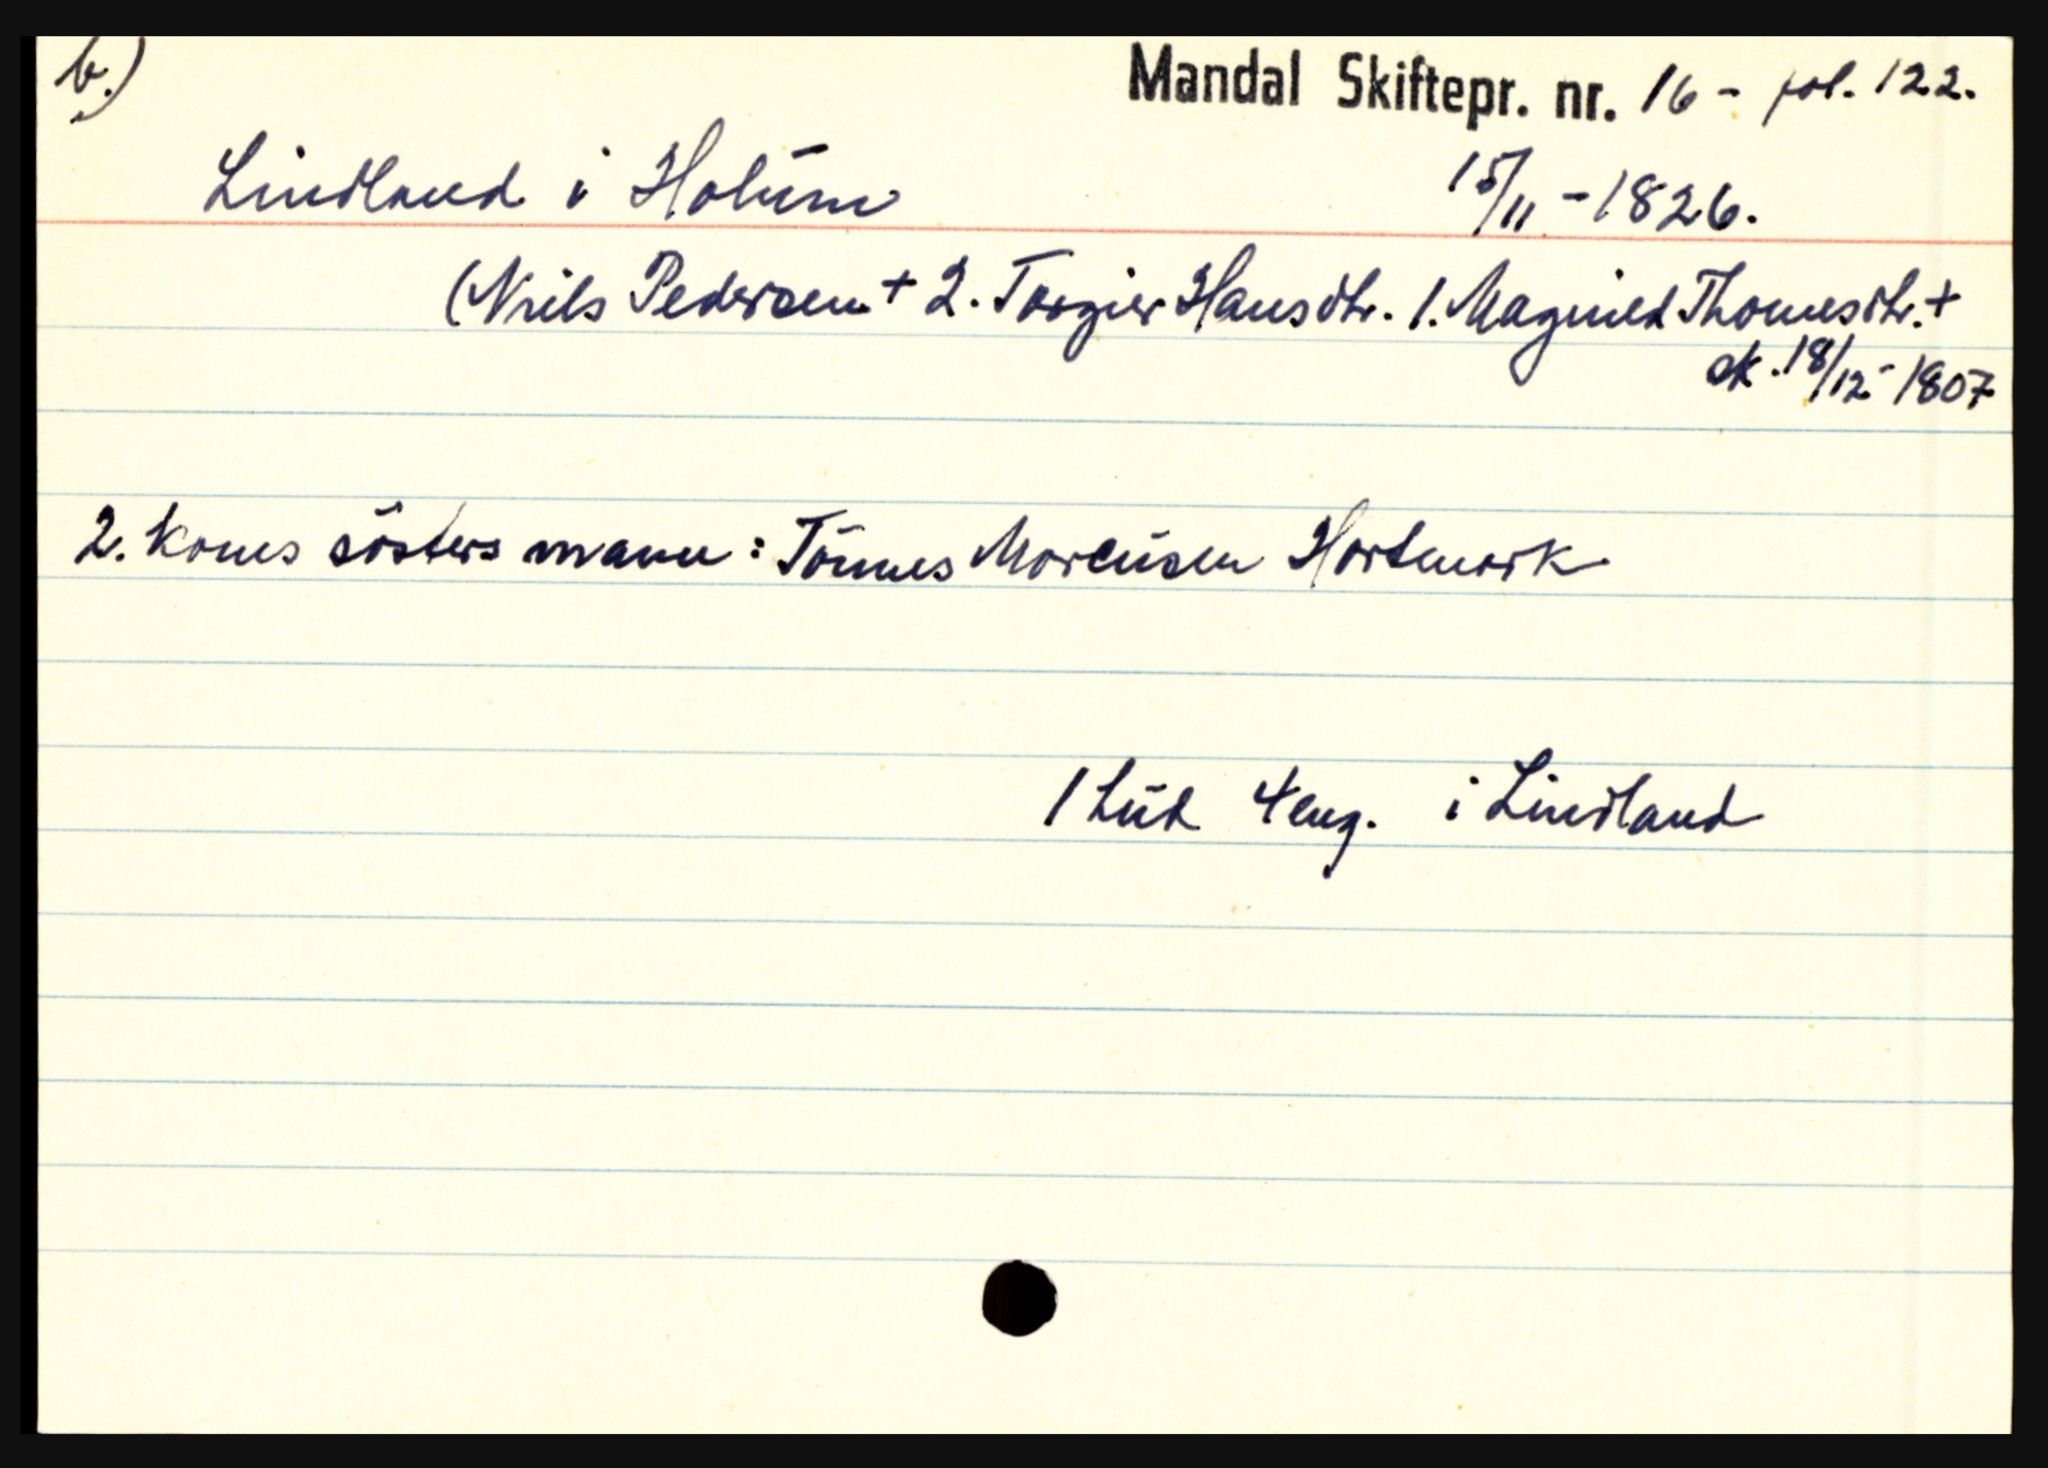 b.)
Mandal Skiftepr. nr. 16 - fol. 122.
Lindland i Holŭm
15/11 - 1826.
(Niels Pedersen + 2. Torgier Hansdtr. 1. Magnild Thomesdtr. +
sk. 18/12 - 1807
2. kones sösters mann: Tönnes Morcŭsen Hortemork
1 hŭd 4 eng. i Lindland